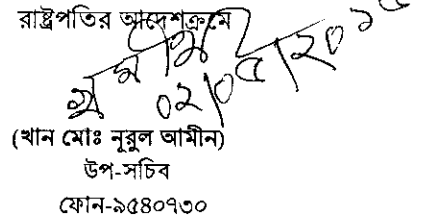 রাষ্ট্রপতির আদেশক্রমে
০২/০৫/২০১৫
(খান মোঃ নূরুল আমীন)
উপ-সচিব
ফোন-৯৫৪০৭৩০